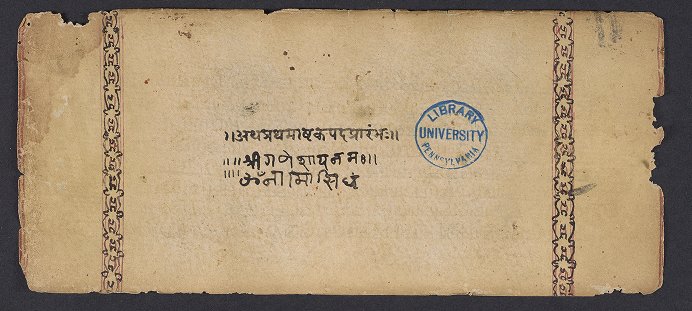 ॥अथप्रथमाष्टकेपदप्रारंभः॥
॥॥श्रीगणेशायनमः॥
॥॥ॐनामोसिधं
LIBRARY
UNIVERSITY
PENNSYLVANIA